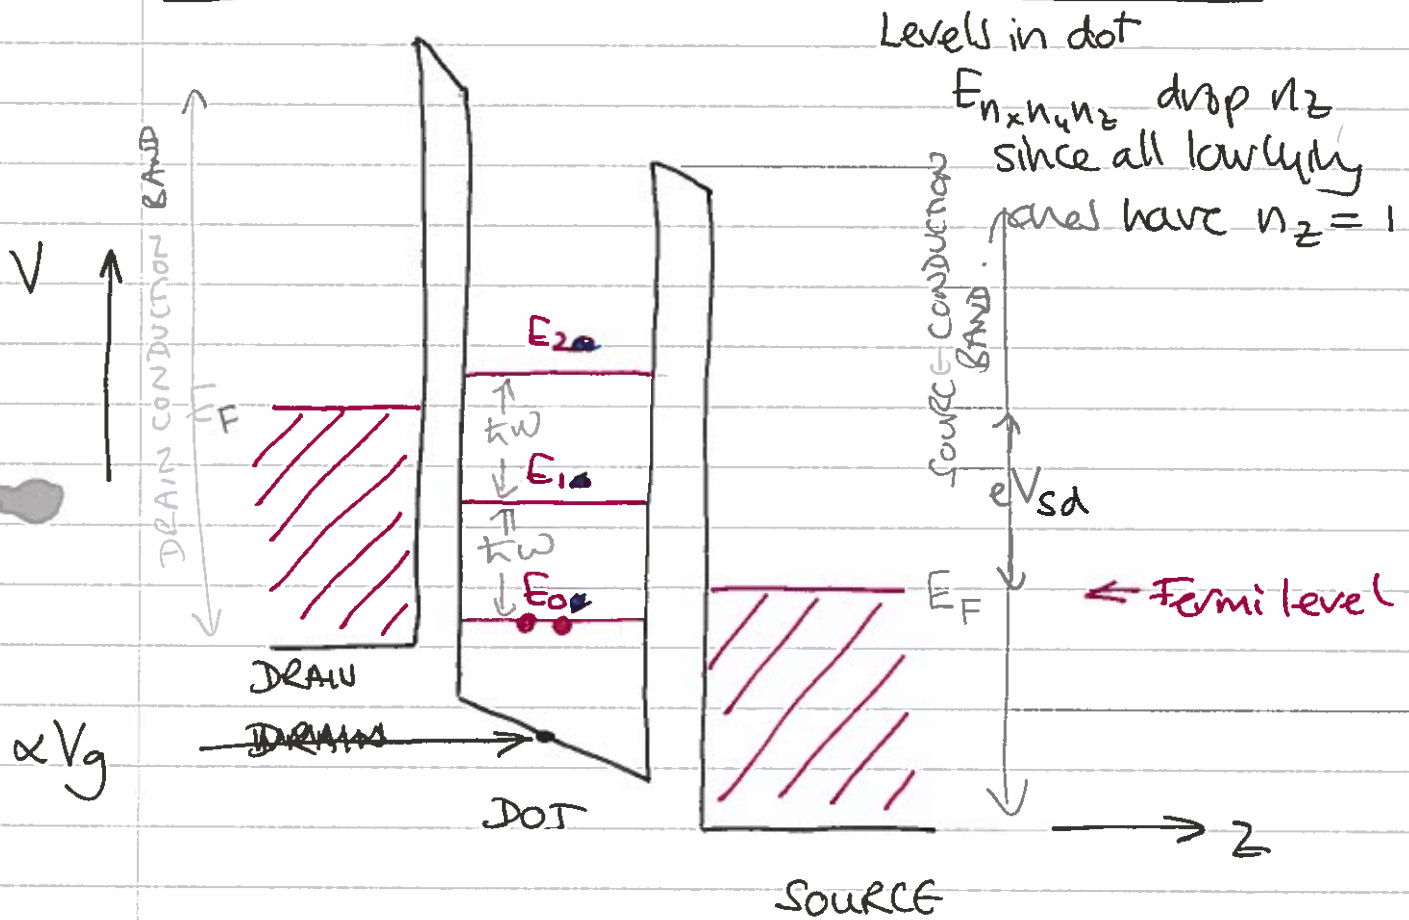 Levels in dot
E_{n_x n_y n_z} drop n_z
since all low lying
ones have n_z = 1
V
DRAIN CONDUCTION BAND
SOURCE CONDUCTION
BAND
E_2
E_F
ħω
E_1
eV_sd
ħω
E_0
E_F
← Fermi level
DRAIN
DRAIN
αV_g
DOT
Z
SOURCE